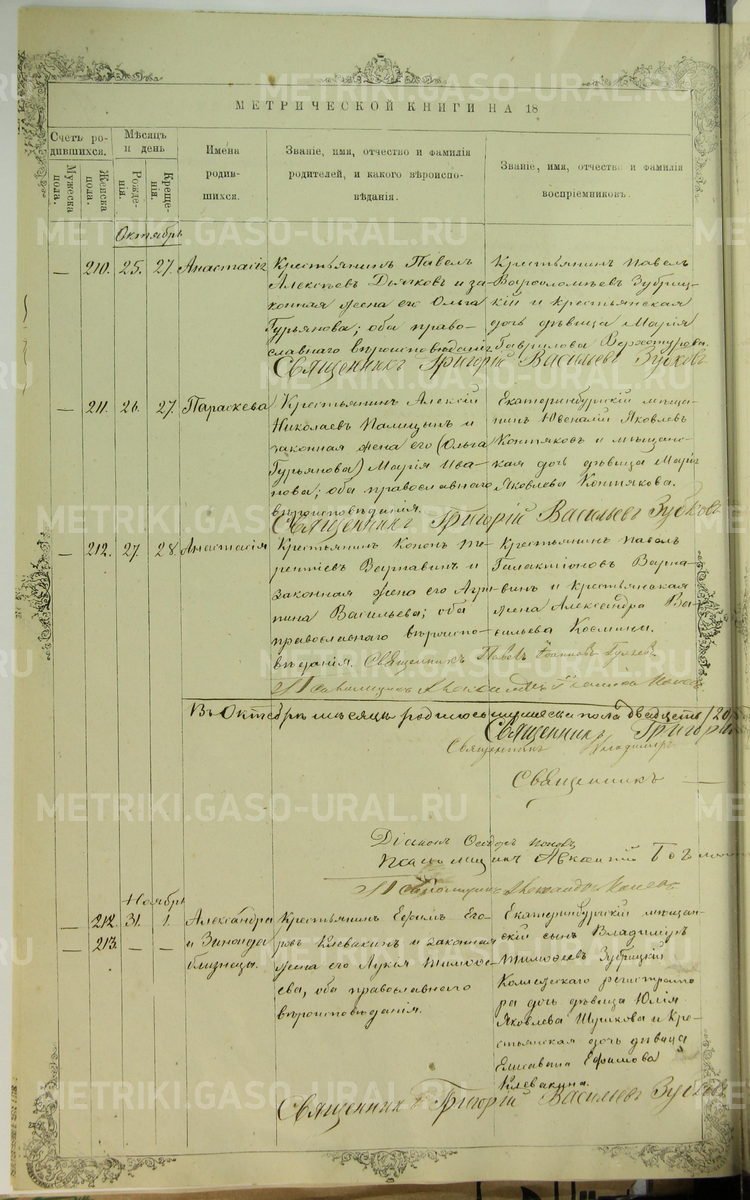 МЕТРИЧЕСКОЙ КНИГИ НА 18
Счетъ ро-
дившихся.
Мужеска
пола.
Женска
пола.
Мѣсяцъ
и день
Рожде-
нія.
Креще-
нія.
Имена
родив-
шихся.
Званіе, имя, отчество и фамилія
родителей, и какого вѣроиспо-
вѣданія.
Званіе, имя, отчество и фамилія
воспріемниковъ.
Октябрь
— 210. 25. 27. Анастасія
Крестьянинъ Павелъ
Алексѣевъ Дьячковъ и за-
конная жена его Ольга
Гурьянова; оба право-
славнаго вѣроисповѣданія
Крестьянинъ Павелъ
Варѳоломѣевъ Зубриц-
кій и крестьянская
дочь дѣвица Марія
Гаврилова
Священникъ Григорій Васильевъ Зубковъ
— 211. 26. 27. Параскева
Крестьянинъ Алексій
Николаевъ Палицынъ и
законная жена его (Ольга
Гурьянова) Марія Ива-
нова; оба православнаго
вѣроисповѣданія.
Екатеринбургскій мѣща-
нинъ Ювеналій Яковлевъ
Контяковъ и мѣщанс-
кая дочь дѣвица Марія
Яковлева Контякова.
Священникъ Григорій Васильевъ Зубковъ
— 212. 27. 28. Анастасія
Крестьянинъ Кононъ Те-
рентіевъ Варнавинъ и
законная жена его Агри-
пина Васильева; оба
православнаго вѣроиспо-
вѣданія.
Крестьянинъ Павелъ
Галактіоновъ Варна-
винъ и Крестьянская
жена Александра Ва-
сильева
Священникъ Павелъ Іоанновъ
Въ Октябрѣ мѣсяцѣ родилось мужеска пола двадцать (20
Священникъ Григорі
Священникъ Владиміръ
Священникъ —
Діаконъ Ѳеодоръ Поповъ
Псаломщикъ
Ноябрь
— 212. 31. 1. Александра
— 213. — — и Зинаида
близнецы.
Крестьянинъ Ефимъ Его-
ровъ Клевакинъ и законная
жена его Лукія Тимоѳе-
ева, оба православнаго
вѣроисповѣданія.
Екатеринбургскій мѣщан-
скій сынъ Владиміръ
Тимоѳеевъ Зубрицкій
Коллежскаго регистрато-
ра дочь дѣвица Юлія
Яковлева и Кре-
стьянская дочь дѣвица
Елисавета Ефимова
Клевакина.
Священникъ Григорій Васильевъ Зубковъ
METRIKI.GASO-URAL.RU